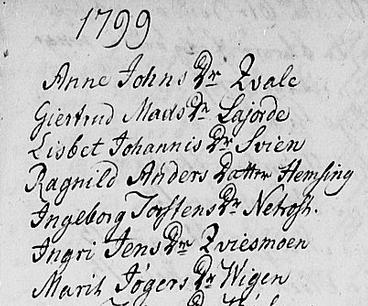 1799
Anne Johns Dr Qvale
Giertrud Mads Dr Lajorde
Lisbet Johannis Dr Svien
Ragnild Anders Datter Hemsing
Ingeborg Torstens Dr
Ingri Jens Dr Qviesmoen
Marit Jøgers Dr Wigen
Dr